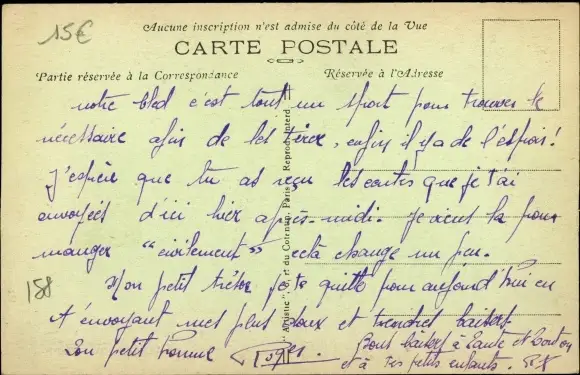 15€
Aucune inscription n'est admise du côté de la Vue
CARTE POSTALE
Partie réservée à la Correspondance
Réservée à l'Adresse
notre bled c'est tout un sport pour trouver le
nécessaire afin de les tirer, enfin il y a de l'espoir!
J'espère que tu as reçu les cartes que je t'ai
envoyées d'ici hier après-midi. je vient là pour
manger "civilement" cela change un peu.
Mon petit trésor je te quitte pour aujourd'hui en
t'envoyant mes plus doux et tendres baisers
Ton petit homme Roger.
Bons baisers à Tante et Tonton
et à tes petits enfants.
158
"Artistic" et du Cotentin, Paris Reprod. Interd